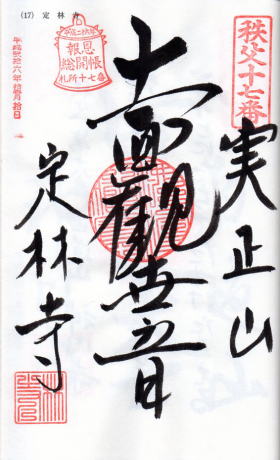 (17) 定林寺
秩父十七番
平成二十六年
報恩
総開帳
札所十七番
実正山
十一面観世音
定林寺